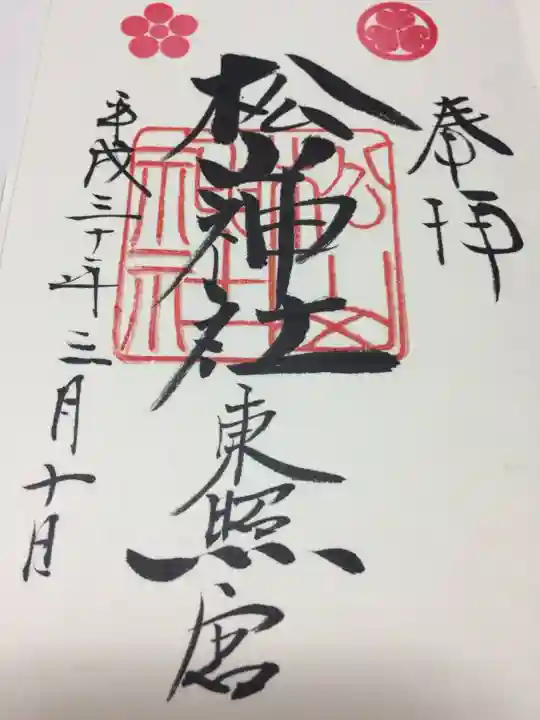 奉拝
松山神社
東照宮
平成三十一年三月十日